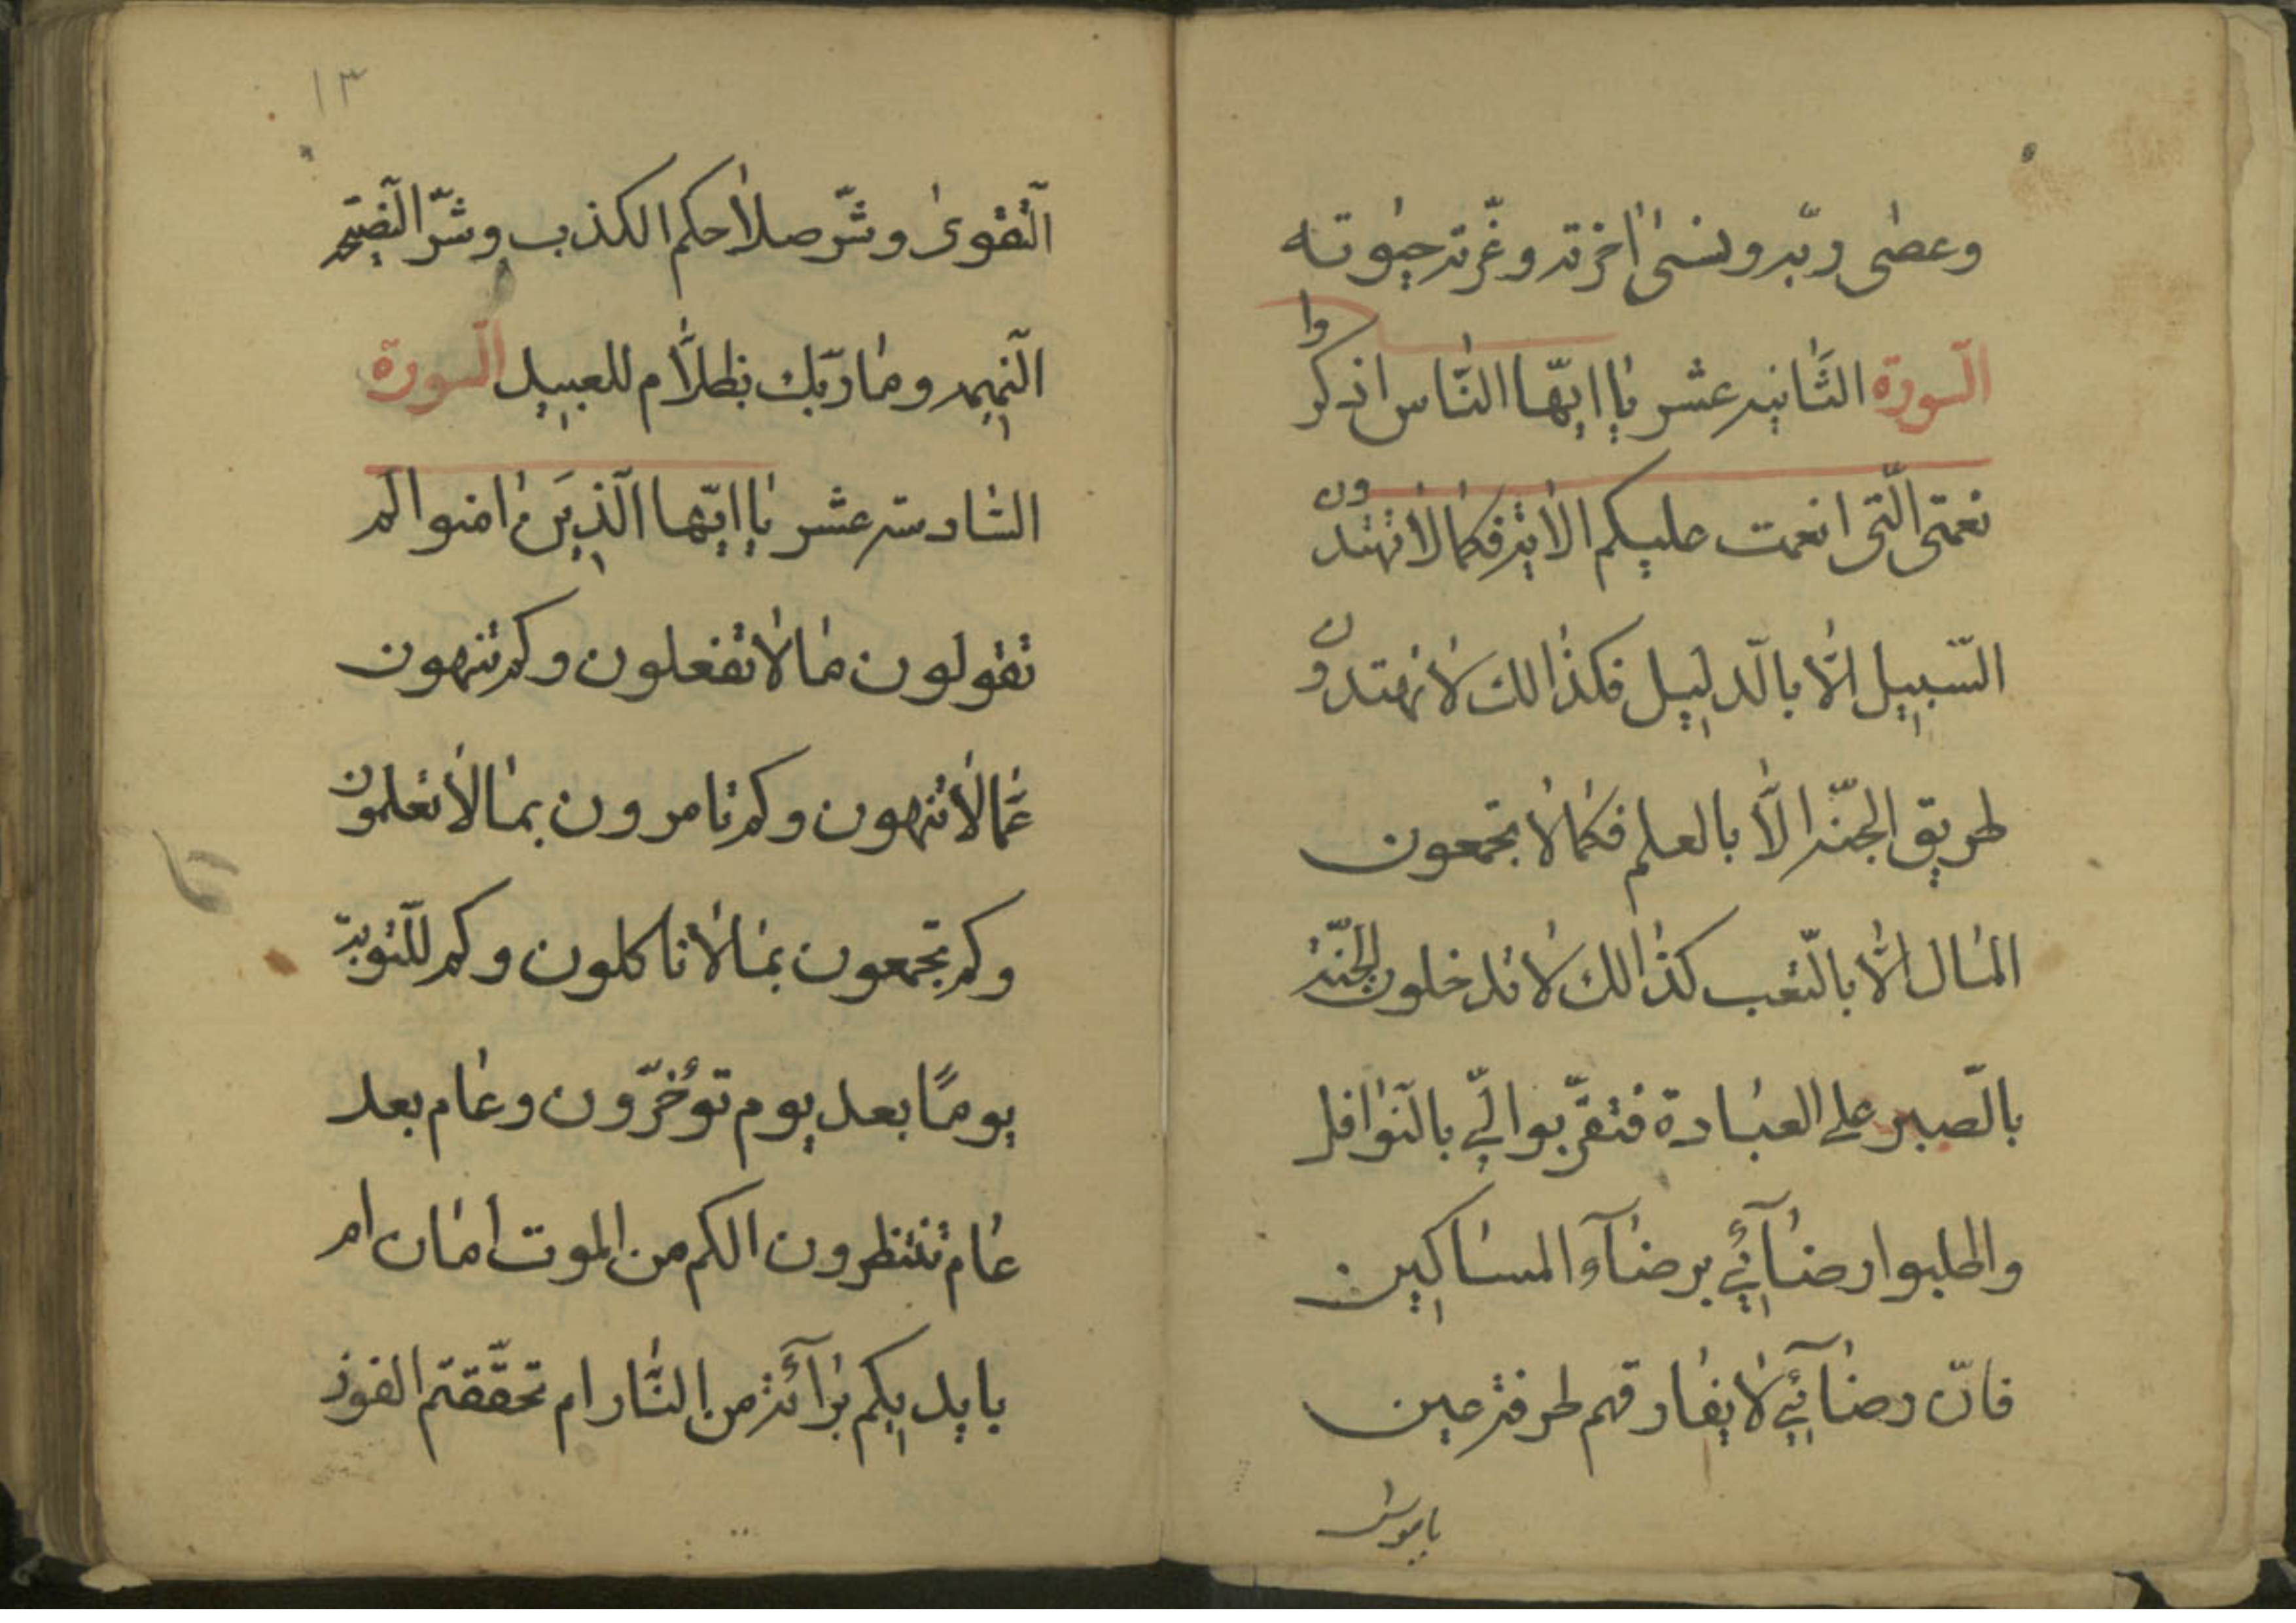 وعصٰى ربّه ونسىٰ اٰخرته وغّرته حيٰوته
السورة الثّانيه عشر يٰا ايّها النّاس اذكروا
نعمتى الّتى انعمت عليكم الاٰيه فكمٰا لاٰ تهتدون
السّبيل الّاٰ بالّدليل فكذٰالك لاٰ تهتدون
طريق الجنّه الّاٰ بالعلم فكمٰا لاٰ تجمعون
المٰال الّاٰ بالّتعب كذٰالك لاٰ تدخلون الجنّة
بالّصبر على العبٰادة فتقرّبوا الىّ بالنّوٰافل
واطلبوا رضٰآئي برضٰآء المسٰاكين
فانّ رضٰآئي لاٰ يفٰارقهم طرفة عين
يا موسٰى
١٣
الّتقوىٰ وشّر صلاٰحكم الكذب وشّر النّصيحه
النّميمه ومٰا ربّك بظلّاٰم للعبيد السورة
السٰادسته عشر يٰا ايّها الّذين اٰمنوا لم
تقولون مٰا لاٰ تفعلون وكم تنهون
عمّٰا لاٰ تنهون وكم تٰامرون بمٰا لاٰ تعلمون
وكم تجمعون بمٰا لاٰ تاكلون وكم للتّوبة
يومًا بعد يوم تؤخّرون وعٰام بعد
عٰام تنتظرون الكم من الموت امٰان ام
بايديكم برٰآئة من النّٰار ام تحقّقتم الفوز